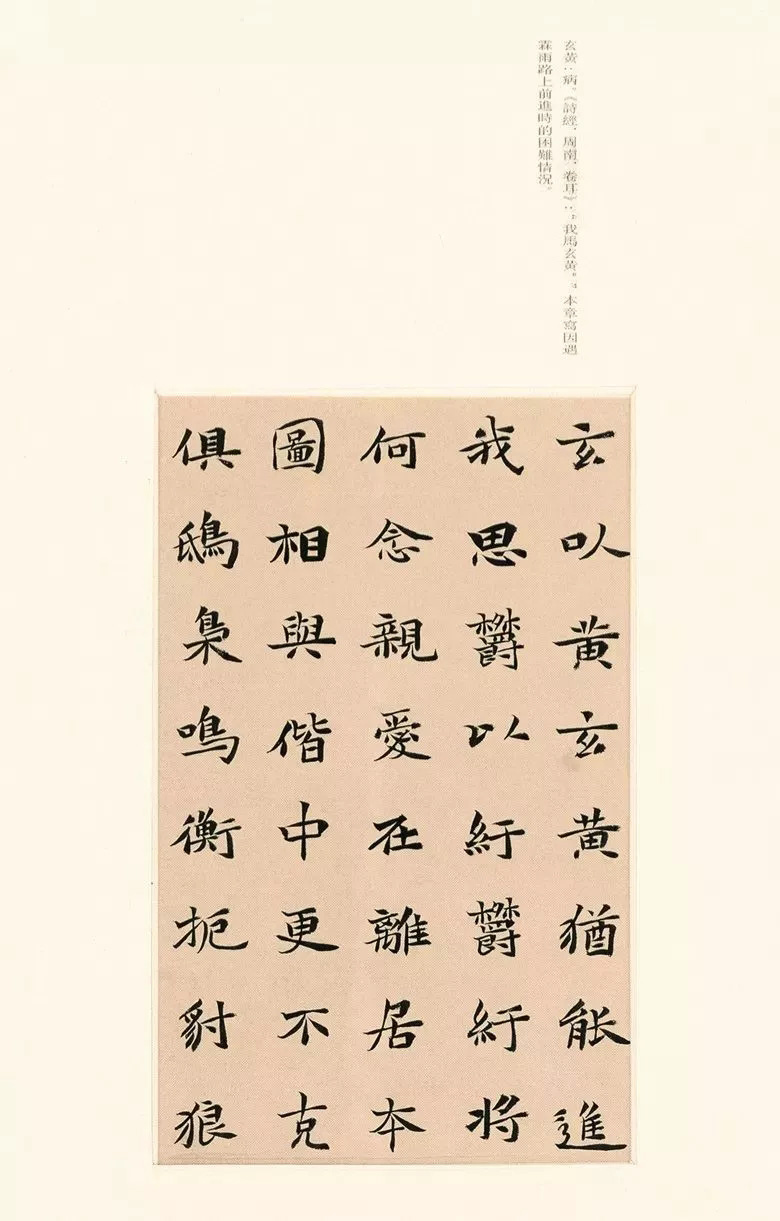 玄黃：病。《詩經．周南．卷耳》：“我馬玄黃。” 本章寫因遇
霖雨路上前進時的困難情況。
玄以黃玄黃猶能進
我思欝以紆欝紆將
何念親愛在離居本
圖相與偕中更不克
俱鴟梟鳴衡扼豺狼